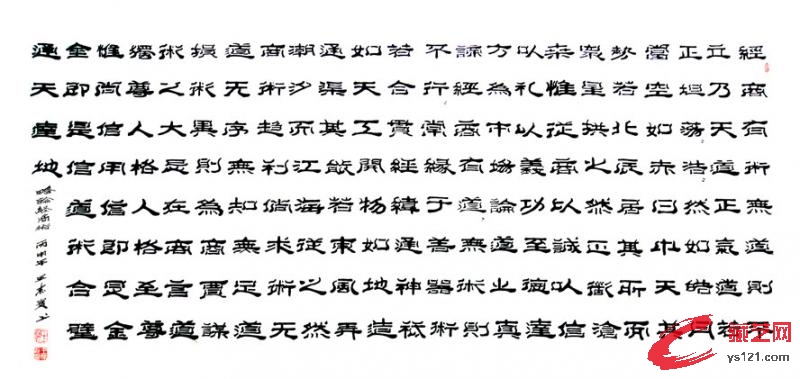 經商有術無道則不
立乃天道正氣道若
正坦荡浩然如皓月
當空如赤日中天其
勢若北辰居其所而
衆星拱之然正衡滄
来惟從商以誠以信
以礼以義功至臻達
方為市場論道止真
諒經商有道無術則
不行常緣于善器術
若合貫經緯通神祇
如天工開物如地造
通渠其若東風弄
潮汐而江海從之然
商術趋利倘求術无
道无序無知無足道
損術異則為商賈謀
術之大忌在商言道
尊人格人格至尊
惟尚信用信即是金
金即是信道術合璧
通天達地
略論經商術 丙申年
藏艺网
ys121.com